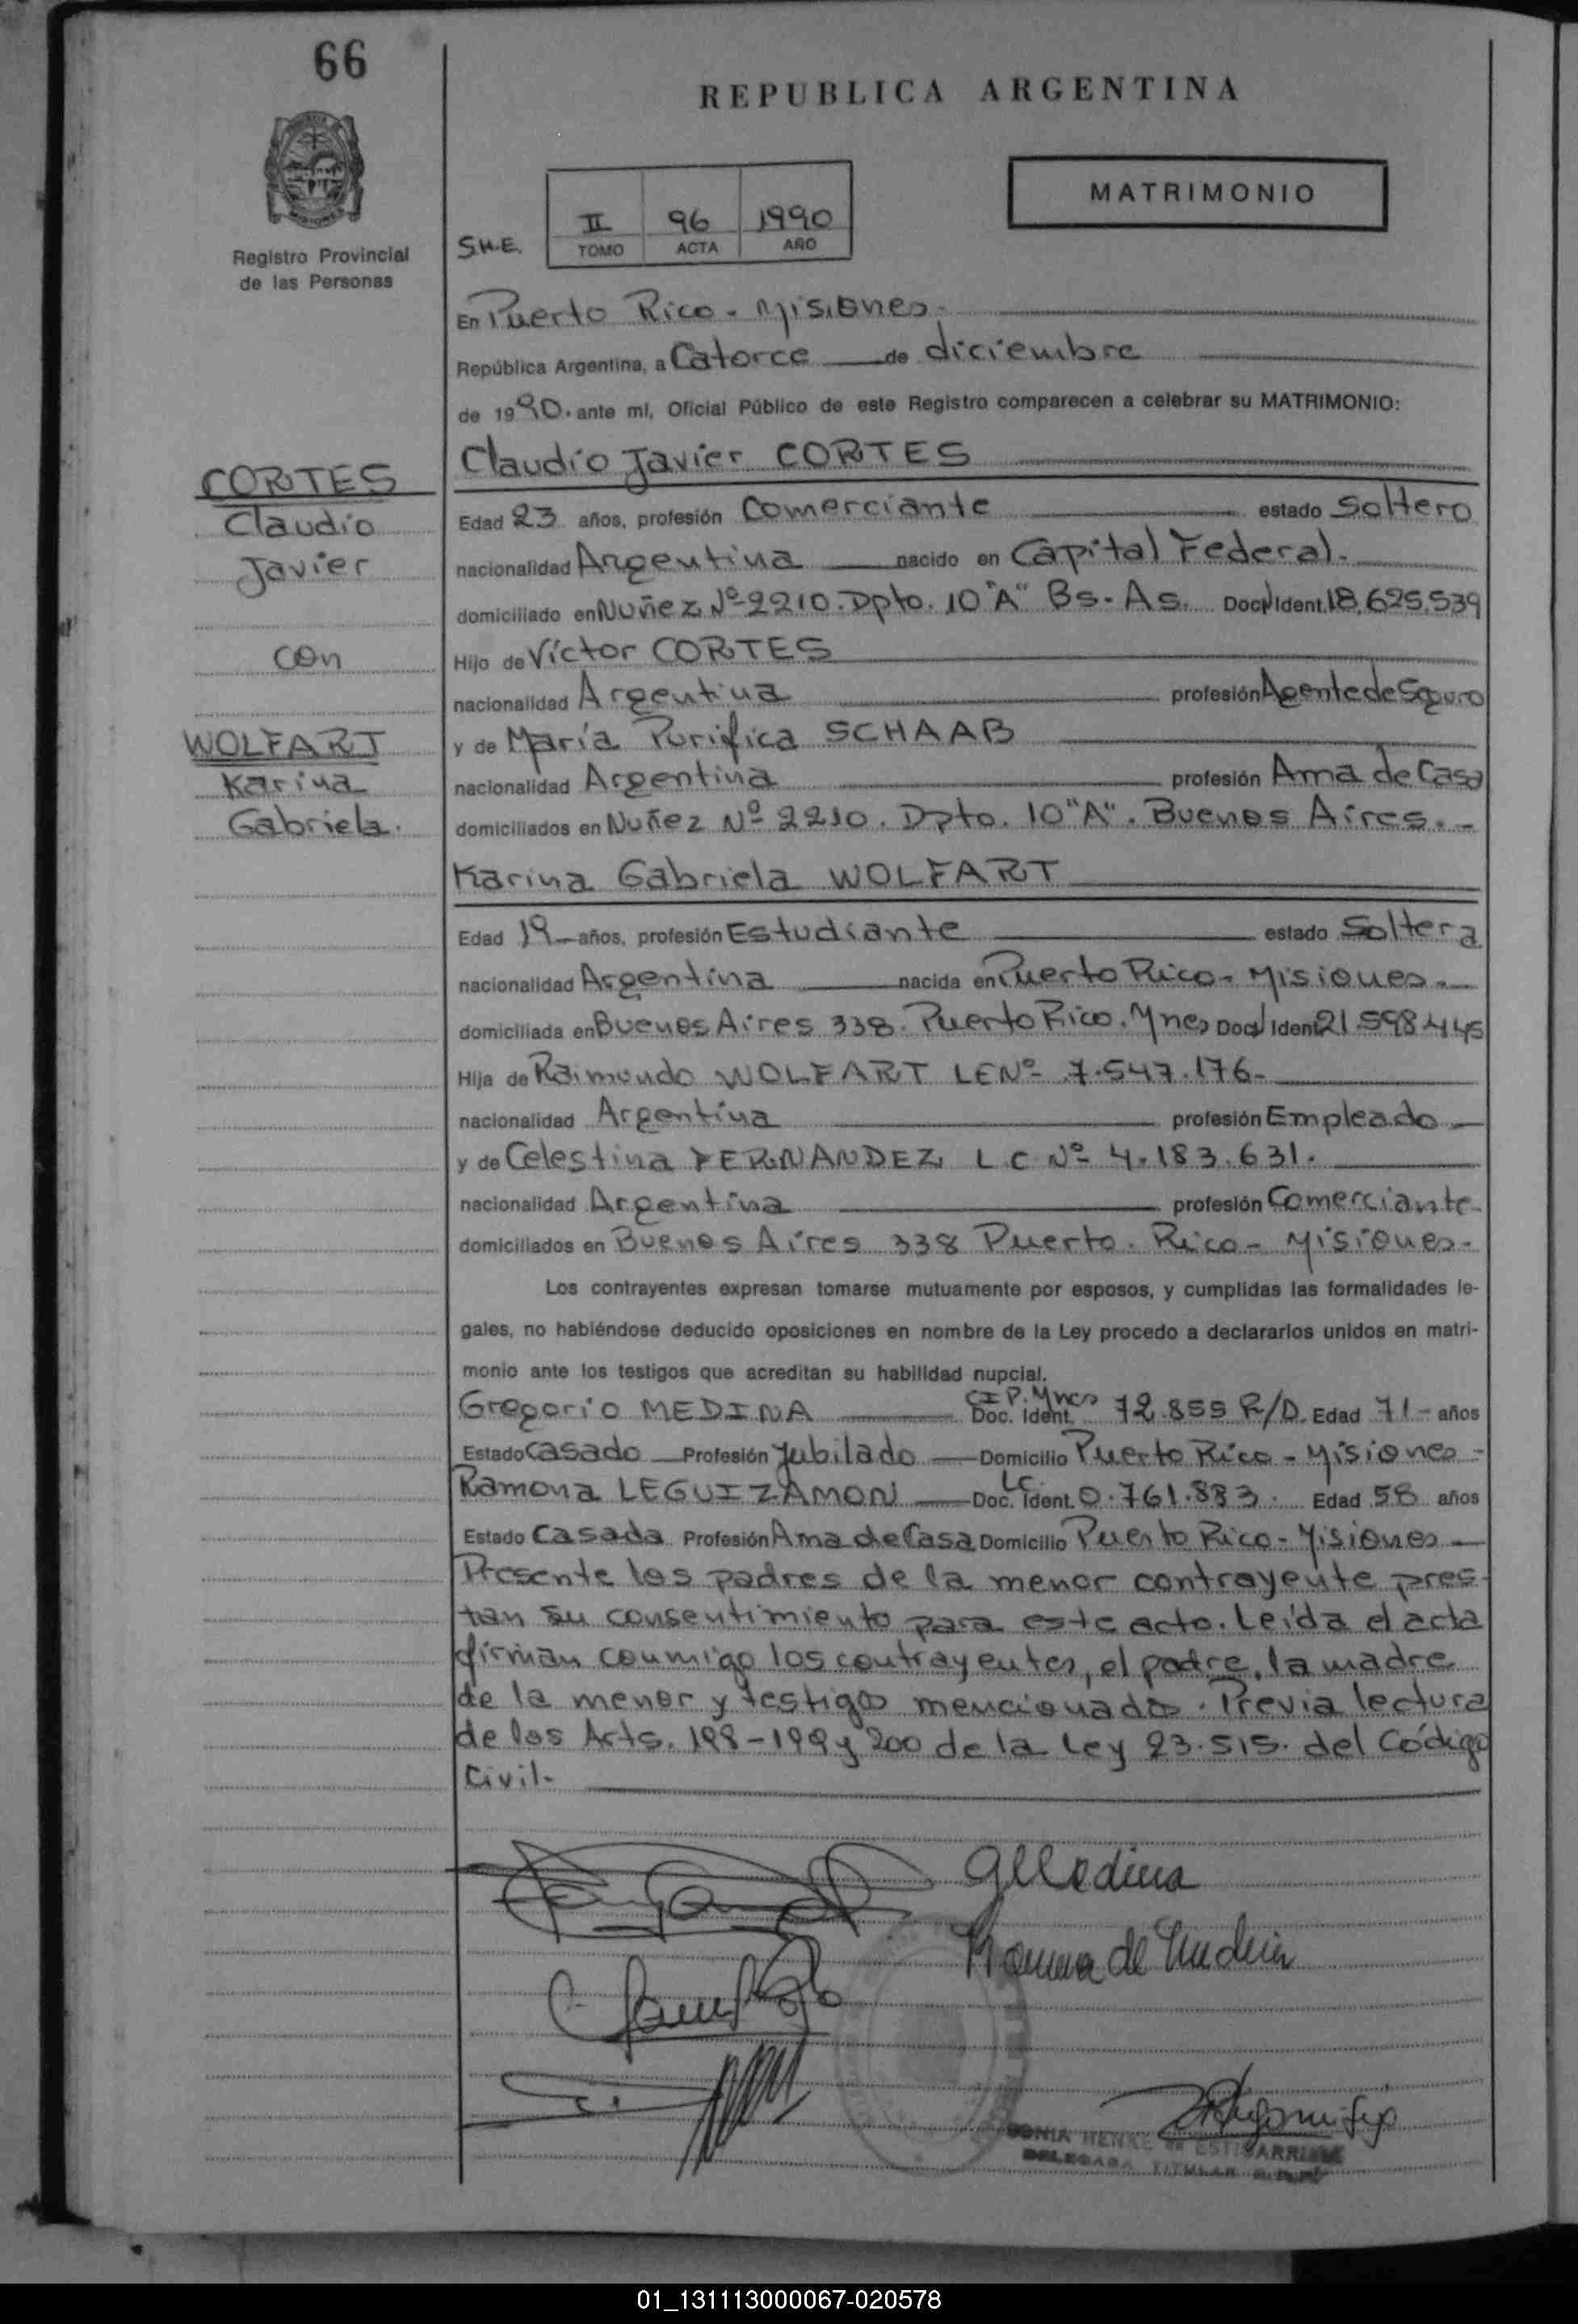 66
REPUBLICA ARGENTINA
MATRIMONIO
Registro Provincial
de las Personas
S.H.E.
II 96 1990
TOMO ACTA AÑO
En Puerto Rico - Misiones-
República Argentina, a Catorce de diciembre
de 1990. ante mí, Oficial Público de este Registro comparecen a celebrar su MATRIMONIO:
Claudio Javier CORTES
CORTES
Claudio
Javier
con
WOLFART
Karina
Gabriela.
Edad 23 años, profesión Comerciante estado Soltero
nacionalidad Argentina nacido en Capital Federal.-
domiciliado en Nuñez Nº 2210. Dpto. 10 "A" Bs. As. Doc. Ident. 18.625.539
Hijo de Víctor CORTES
nacionalidad Argentina profesión Agente de Seguro
y de María Purifica SCHAAB
nacionalidad Argentina profesión Ama de Casa
domiciliados en Nuñez Nº 2210. Dpto. 10 "A". Buenos Aires.-
Karina Gabriela WOLFART
Edad 19 años, profesión Estudiante estado Soltera
nacionalidad Argentina nacida en Puerto Rico - Misiones.
domiciliada en Buenos Aires 338. Puerto Rico. Mnes Doc. Ident. 21.598.445
Hija de Raimundo WOLFART LE Nº 7.547.176-
nacionalidad Argentina profesión Empleado
y de Celestina FERNANDEZ L C Nº 4.183.631.
nacionalidad Argentina profesión Comerciante-
domiciliados en Buenos Aires 338 Puerto. Rico - Misiones-
Los contrayentes expresan tomarse mutuamente por esposos, y cumplidas las formalidades le-
gales, no habiéndose deducido oposiciones en nombre de la Ley procedo a declararlos unidos en matri-
monio ante los testigos que acreditan su habilidad nupcial.
Gregorio MEDINA CIP. Mnes Doc. Ident. 72.855 R/D. Edad 71- años
Estado Casado Profesión Jubilado Domicilio Puerto Rico - Misiones-
Ramona LEGUIZAMON LC. Doc. Ident. 0.761.883. Edad 58 años
Estado Casada Profesión Ama de Casa Domicilio Puerto Rico - Misiones
Presente los padres de la menor contrayente pres-
tan su consentimiento para este acto. Leída el acta
firman conmigo los contrayentes, el padre, la madre
de la menor y testigos mencionados. Previa lectura
de los Arts. 198-199 y 200 de la Ley 23.515. del Código
Civil-
GMedina
Ramona de Medina
SONIA HENKE de ESTIGARRIBIA
DELEGADA TITULAR
01_131113000067-020578